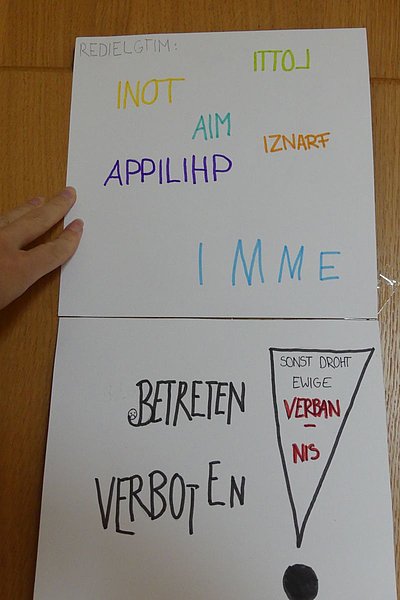 REDIELGTIM:
ITTOL
INOT
AIM
IZNARF
APPILIHP
IMME
BETRETEN
VERBOTEN
SONST DROHT
EWIGE
VERBAN
-
NIS